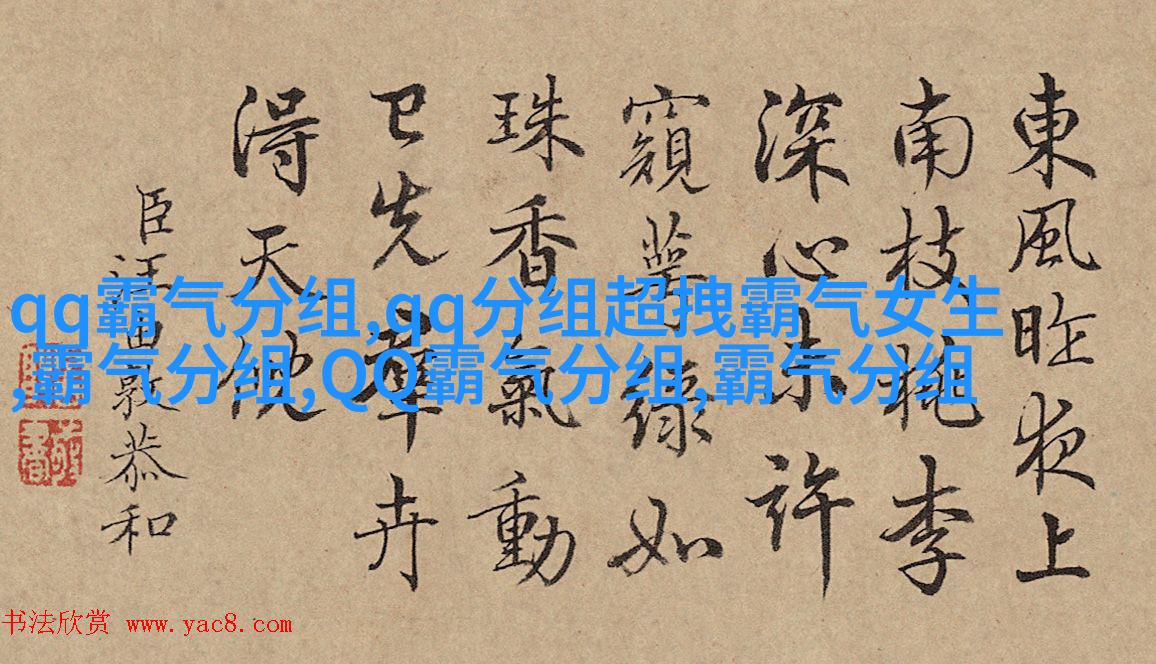 東風昨夜上
南枝桃李
深心未許
窺萼綠如
珠香氣動
已先羣卉
得天施
臣汪由敦恭和
qq霸气分组,qq分组超拽霸气女生
,霸气分组,QQ霸气分组,霸气分组
书法欣赏 www.yac8.com